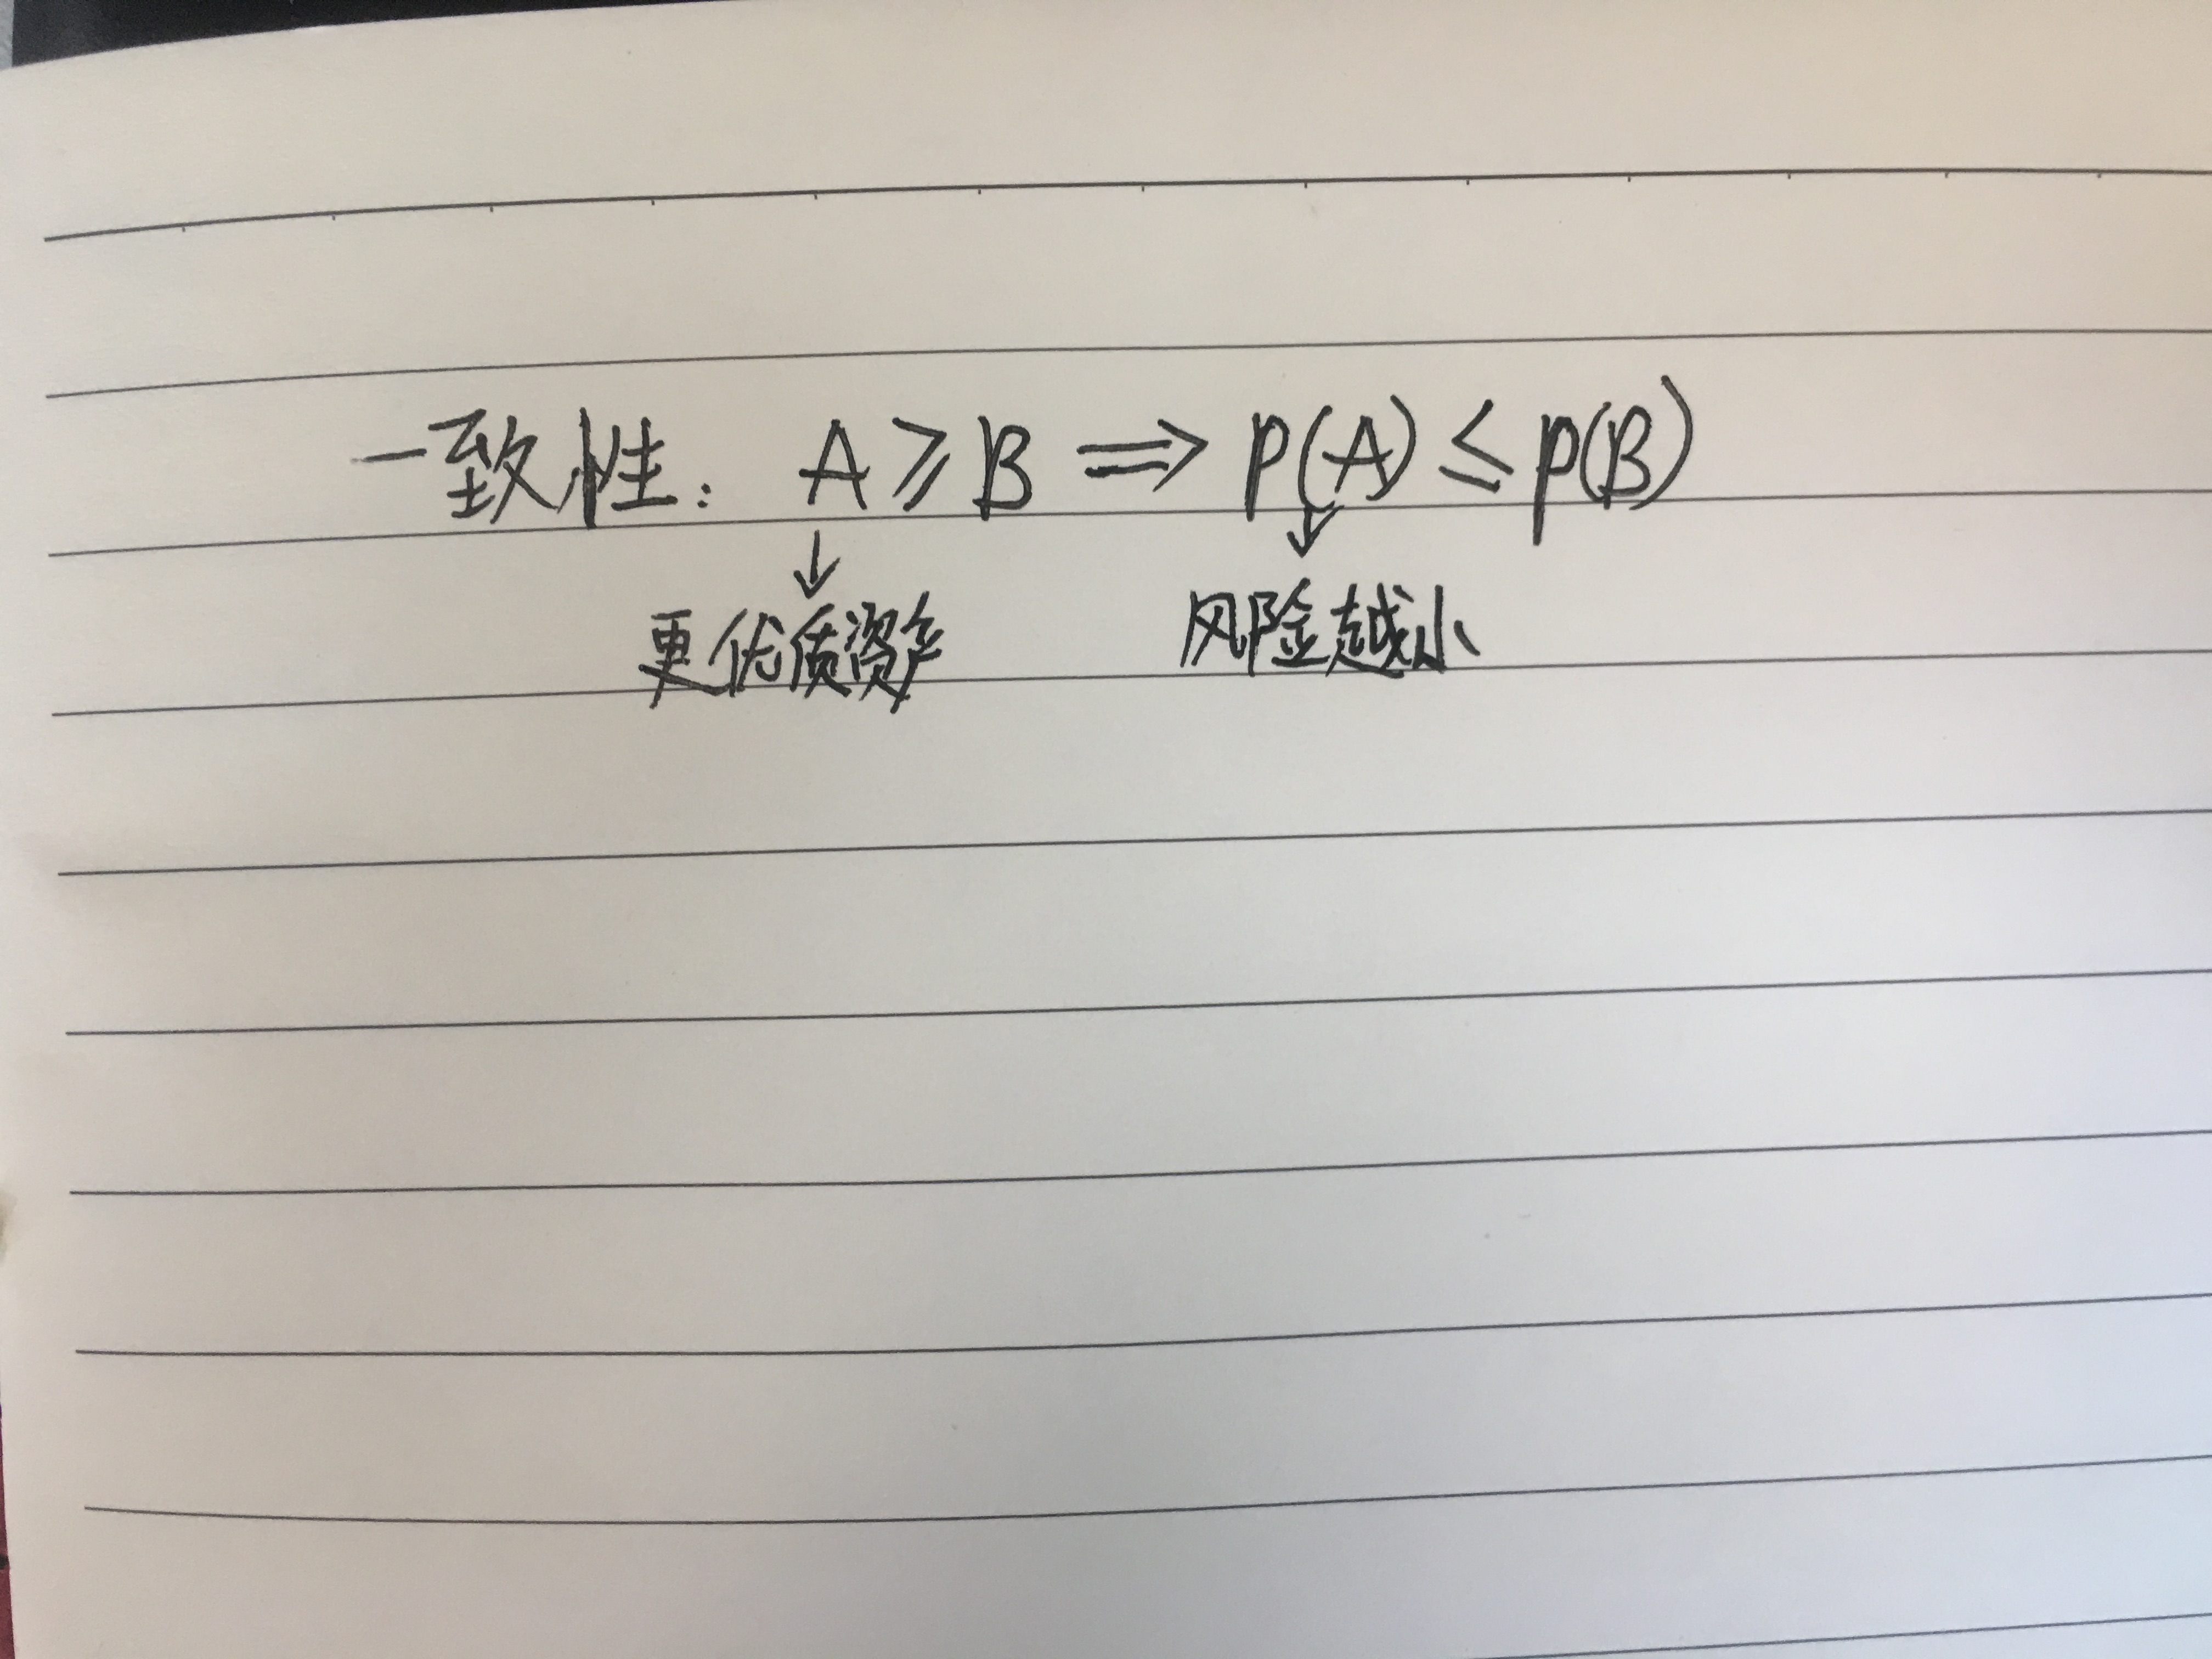 一致性: A ≥ B ⟹ P(A) ≤ P(B)
↓ ↓
更优质资产 风险越小